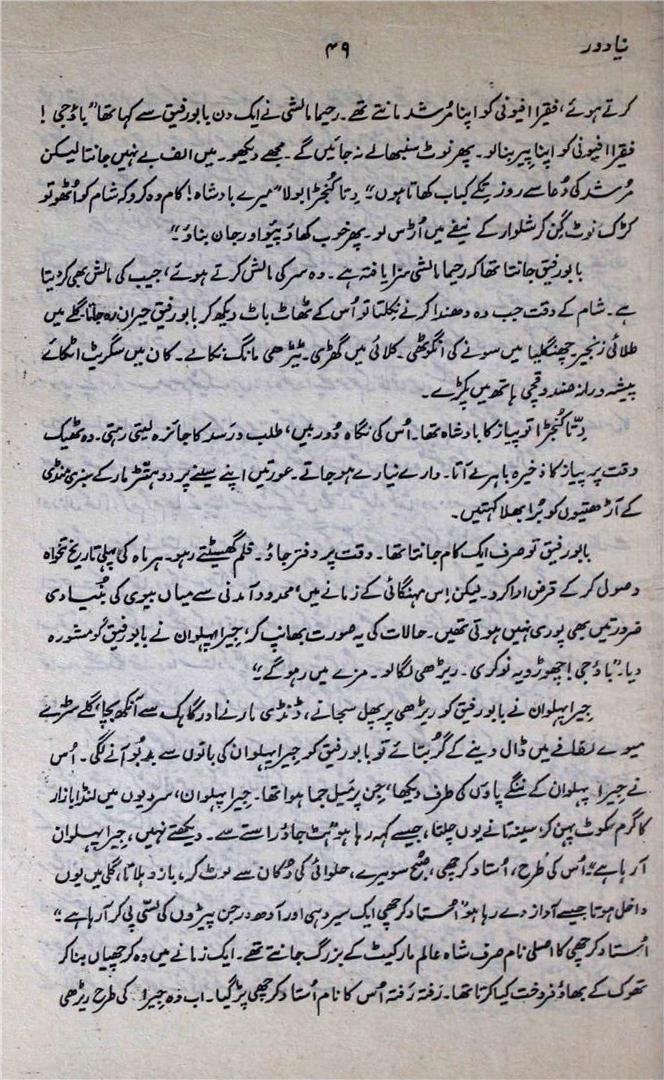 نیا دور
۴۹
کرتے ہوئے، فقیرا افیونی کو اپنا مُرشد مانتے تھے۔ رحیما مالشی نے ایک دن بابو رفیق سے کہا تھا ”باؤجی!
فقیرا افیونی کو اپنا پیر بنا لو۔ پھر نوٹ سنبھالے نہ جائیں گے۔ مجھے دیکھو۔ میں الف بے نہیں جانتا لیکن
مُرشد کی دُعا سے روز تِکے کباب کھاتا ہوں“۔ دِتا کُنجڑا بولا ”میرے بادشاہ! کام وہ کرو کہ شام کو اُٹھو تو
کڑک نوٹ گِن کر شلوار کے نیفے میں اُڑس لو۔ پھر خوب کھاؤ پیئو اور جان بناؤ“۔
بابو رفیق جانتا تھا کہ رحیما مالشی سزا یافتہ ہے۔ وہ سر کی مالش کرتے ہوئے، جیب کی مالش بھی کر دیتا
ہے۔ شام کے وقت جب وہ دھندا کرنے نکلتا تو اُس کے ٹھاٹ باٹ دیکھ کر بابو رفیق حیران رہ جاتا۔ گلے میں
طلائی زنجیر چھنگلیا میں سونے کی انگوٹھی۔ کلائی میں گھڑی۔ ٹیڑھی مانگ نکالے۔ کان میں سگریٹ اٹکائے
پیشہ ورانہ صندوقچی ہاتھ میں پکڑے۔
دِتّا کُنجڑا تو پیاز کا بادشاہ تھا۔ اُس کی نگاہ دُوربیں، طلب و رسد کا جائزہ لیتی رہتی۔ وہ ٹھیک
وقت پر پیاز کا ذخیرہ باہر لے آتا۔ وارے نیارے ہو جاتے۔ عورتیں اپنے سینے پر دو ہتڑ مار کے سبزی منڈی
کے آڑھتیوں کو بُرا بھلا کہتیں۔
بابو رفیق تو صرف ایک کام جانتا تھا۔ وقت پر دفتر جاؤ۔ قلم گھسیٹتے رہو۔ ہر ماہ کی پہلی تاریخ تنخواہ
وصول کر کے قرض ادا کرو۔ لیکن اِس مہنگائی کے زمانے میں، محدود آمدنی سے میاں بیوی کی بُنیادی
ضرورتیں بھی پوری نہیں ہوتی تھیں۔ حالات کی یہ صورت بھانپ کر، جیرا پہلوان نے بابو رفیق کو مشورہ
دیا۔ ”باؤجی! چھوڑو یہ نوکری۔ ریڑھی لگا لو۔ مزے میں رہو گے“۔
جیرا پہلوان نے بابو رفیق کو ریڑھی پر پھل سجانے، ڈنڈی مارنے اور گاہک سے آنکھ بچا، گلے سڑے
میوے لفافے میں ڈال دینے کے گُر بتائے تو بابو رفیق کو جیرا پہلوان کی باتوں سے بدبو آنے لگی۔ اُس
نے جیرا پہلوان کے ننگے پاؤں کی طرف دیکھا، جن پر میل جما ہوا تھا۔ جیرا پہلوان، سردیوں میں لنڈا بازار
کا گرم سُکوٹ پہن کر، سینہ تانے یوں چلتا، جیسے کہہ رہا ہو ”ہٹ جاؤ راستے سے۔ دیکھتے نہیں، جیرا پہلوان
آ رہا ہے“۔ اُس کی طرح، اُستاد کرچھی، صبح سویرے، حلوائی کی دُکان سے لوٹ کر، بازو ہلاتا، گلی میں یوں
داخل ہوتا جیسے آواز دے رہا ہو ”اُستاد کرچھی ایک سیر دہی اور آدھ درجن پیڑوں کی لسّی پی کر آ رہا ہے“۔
اُستاد کرچھی کا اصلی نام صرف شاہ عالم مارکیٹ کے بزرگ جانتے تھے۔ ایک زمانے میں وہ کرچھیاں بنا کر
تھوک کے بھاؤ فروخت کیا کرتا تھا۔ رفتہ رفتہ اُس کا نام اُستاد کرچھی پڑ گیا۔ اب وہ جیرا کی طرح ریڑھی